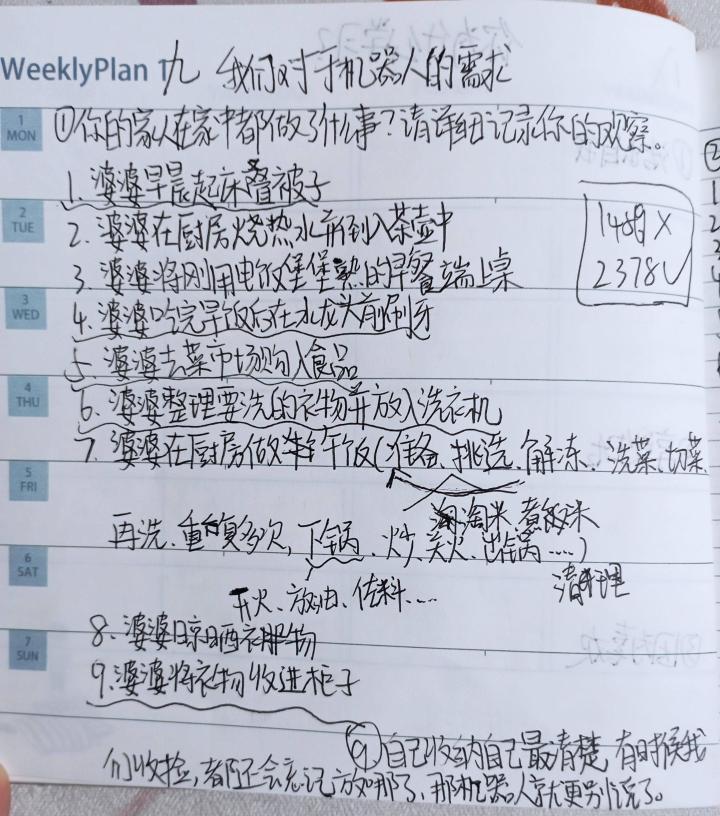 WeeklyPlan 1 九 我们对于机器人的需求
1
MON
①你的家人在家中都做了什么事?请详细记录你的观察。
1. 婆婆早晨起床叠被子
2
TUE
2. 婆婆在厨房烧热水并倒入茶壶中
3. 婆婆将刚用电饭煲煲熟的早餐端上桌
1489 X
2378 √
3
WED
4. 婆婆吃完早饭后在水龙头前刷牙
5. 婆婆去菜市场购入食品
4
THU
6. 婆婆整理要洗的衣物并放入洗衣机
7. 婆婆在厨房做午饭(准备、挑选、解冻、洗菜、切菜
5
FRI
淘米、煮
再洗、重复多次,下锅、炒、关火、出锅....)
6
SAT
开火、放油、佐料....
清理
8. 婆婆晾晒衣物
7
SUN
9. 婆婆将衣物收进柜子
⑨自己收纳自己最清楚,有时候我
们收捡,都还会忘记放哪了,那机器人就更别说了。
②
1
2
3
4